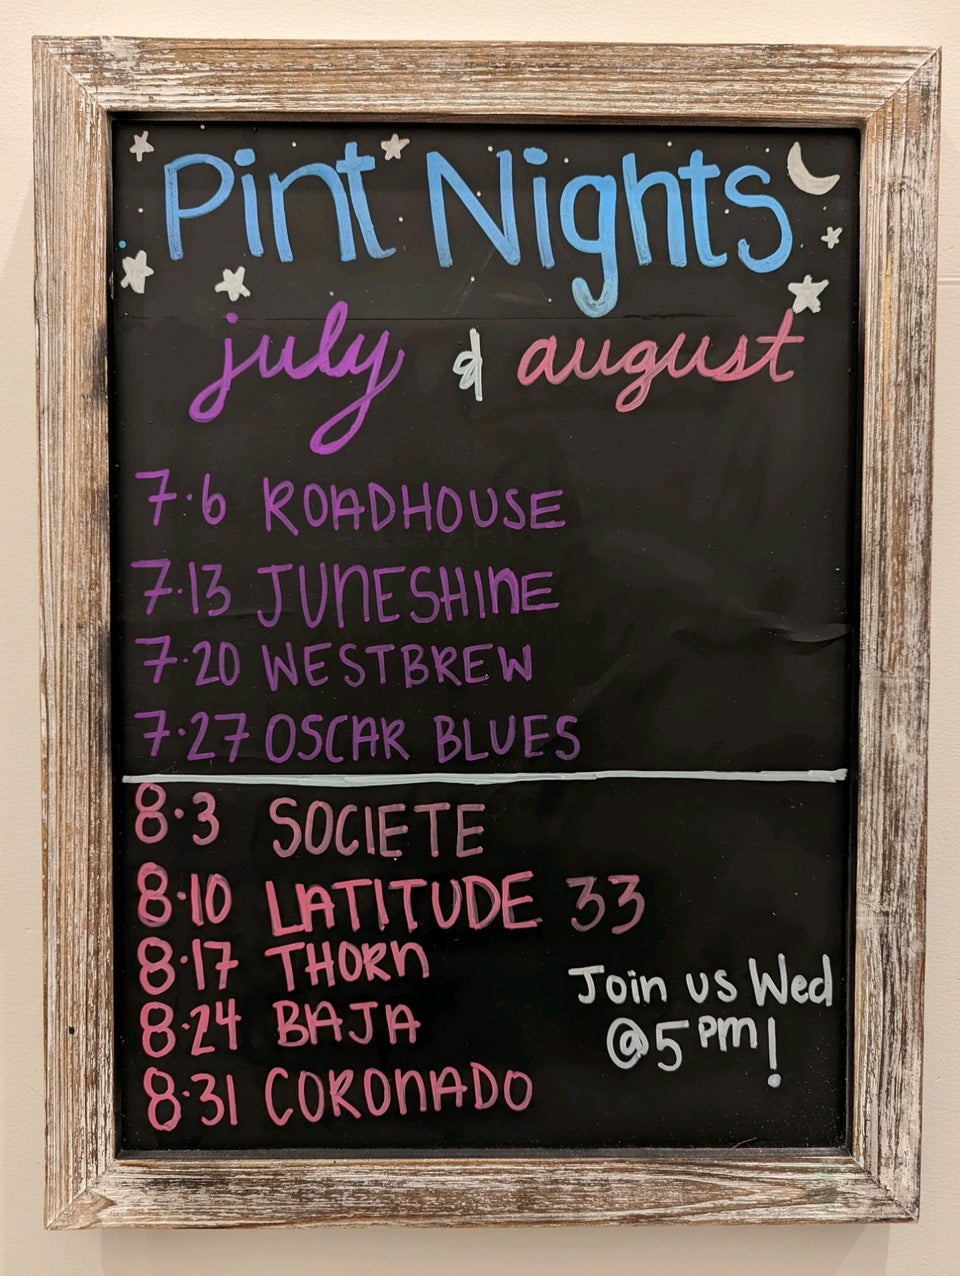 Pint Nights
july & august
7.6 ROADHOUSE
7.13 JUNESHINE
7.20 WESTBREW
7.27 OSCAR BLUES
8.3 SOCIETE
8.10 LATITUDE 33
8.17 THORN
8.24 BAJA
8.31 CORONADO
Join us Wed
@5pm!